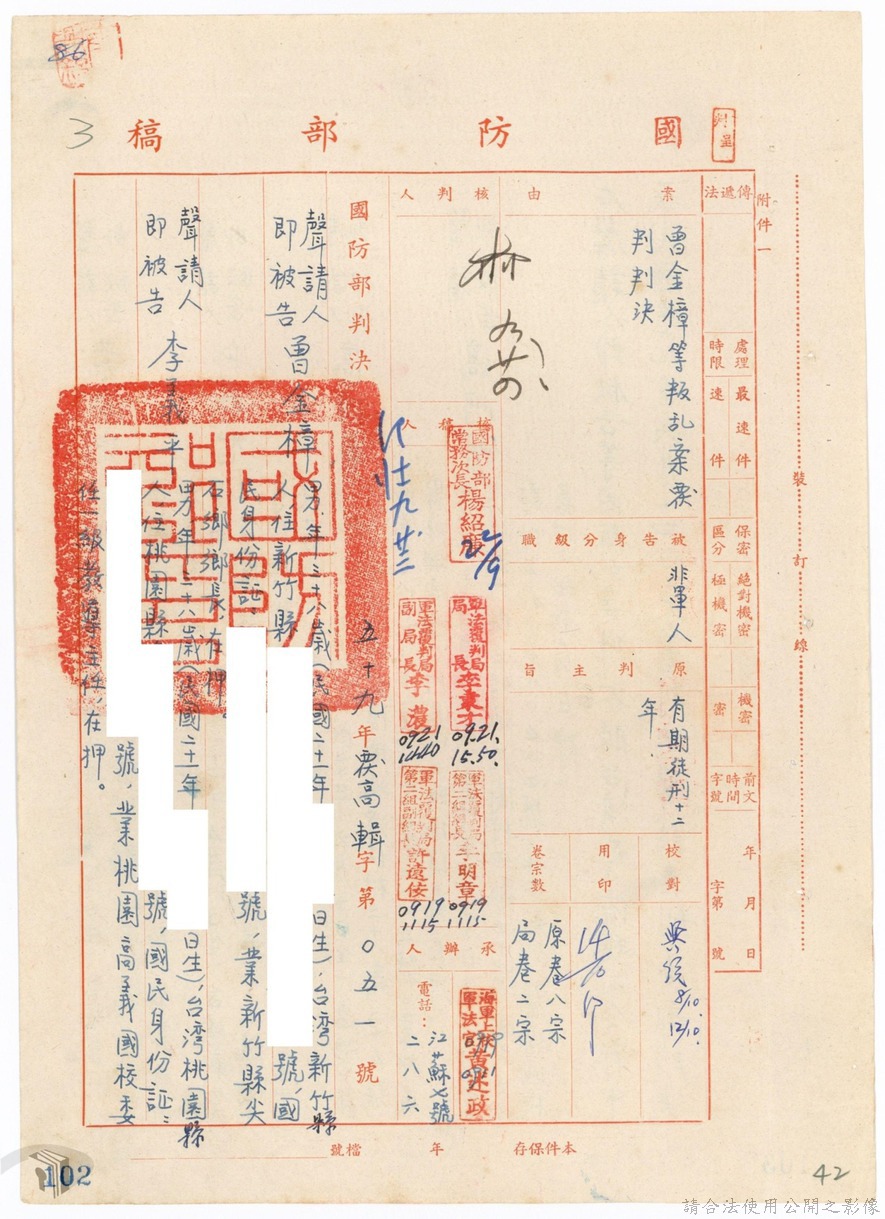 86
3
國防部稿
附件一
傳遞法
處理時限
最速件
速件
保密區分
絕對機密
極機密
機密
密
前文時間字號
年月日
字第號
案由
曾金樟等叛乱案覆
判判決
被告身分級職
非軍人
原判主旨
有期徒刑十二
年
校對
用印
卷宗數
原卷八宗
局卷二宗
核判人
林
核稿人
國防部
常務次長楊紹廉
22/9
軍法覆判局
局長李東才
09.21.
15.50.
軍法覆判局
副局長李濃
0921
1440
軍法覆判局
第二組組長李明章
0919
1115
軍法覆判局
第二組副組長許遠侒
0919
1115
承辦人
海軍上校
軍法官
電話:
江蘇七號
二八六
國防部判決
五十九年覆高輯字第〇五一號
聲請人
即被告
曾金樟
男,年三十八歲(民國二十一年
日生),台灣新竹縣
人,住新竹縣
號,國
民身份証:
號,業新竹縣尖
石鄉鄉長,在押。
聲請人
即被告
李義平
男,年三十八歲(民國二十一年
日生),台灣桃園縣
人,住桃園縣
號,國民身份証:
號,業桃園高義國校委
任一級教導主任,在押。
裝訂線
本件保存年
檔號
102
42
請合法使用公開之影像